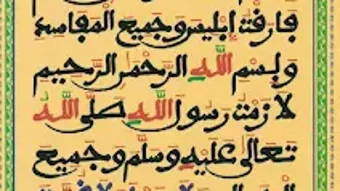 فارقت إبليس وجميع المفاسد
وبسم الله الرحمن الرحيم
لازمت رسول الله صلى الله
تعالى عليه وسلم وجميع